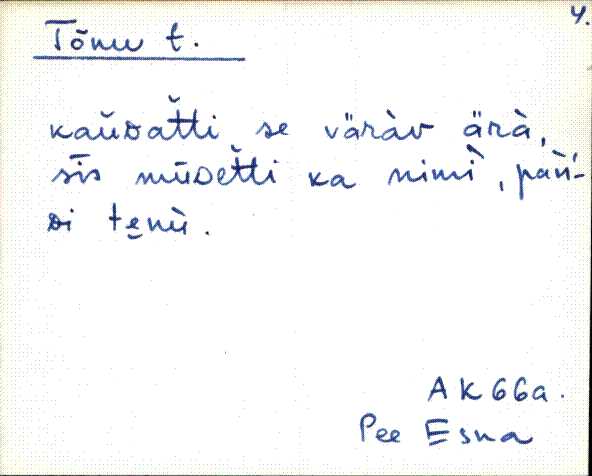 4.
Tõnu t.
kaŭᴅat̆ti se väràv ärà,
sīs mūᴅet̆ti ka nimì, pàǹ-
ᴅi te̮nù.
AK 66a.
Pee Esna